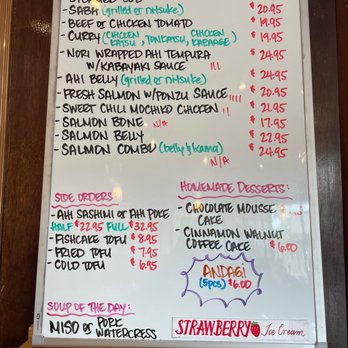 - SABA (grilled or nitsuke) $20.95
- BEEF or CHICKEN TOMATO $19.95
- CURRY (CHICKEN KATSU, TONKATSU, CHICKEN KARAAGE) $19.95
- NORI WRAPPED AHI TEMPURA $24.95
W/KABAYAKI SAUCE !!!
- AHI BELLY (grilled or nitsuke) $24.95
- FRESH SALMON W/PONZU SAUCE !!!! $20.95
- SWEET CHILI MOCHIKO CHICKEN !! $21.95
- SALMON BONE N/A $17.95
- SALMON BELLY $22.95
- SALMON COMBO (belly & kama) $24.95
N/A
SIDE ORDERS
- AHI SASHIMI or AHI POKE
HALF $22.95 FULL $32.95
- FISHCAKE TOFU $8.95
- FRIED TOFU $7.95
- COLD TOFU $6.95
HOMEMADE DESSERTS:
- CHOCOLATE MOUSSE CAKE
- CINNAMON WALNUT
COFFEE CAKE $6.00
ANDAGI
(5pcs) $6.00
SOUP OF THE DAY:
MISO or PORK WATERCRESS
STRAWBERRY Ice Cream